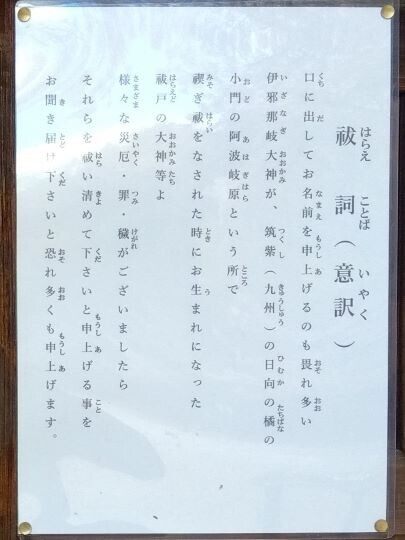 祓詞（意訳）
口に出してお名前を申上げるのも畏れ多い
伊邪那岐大神が、筑紫（九州）の日向の橘の
小門の阿波岐原という所で
禊ぎ祓をなされた時にお生まれになった
祓戸の大神等よ
様々な災厄・罪・穢がございましたら
それらを祓い清めて下さいと申上げる事を
お聞き届け下さいと恐れ多くも申上げます。